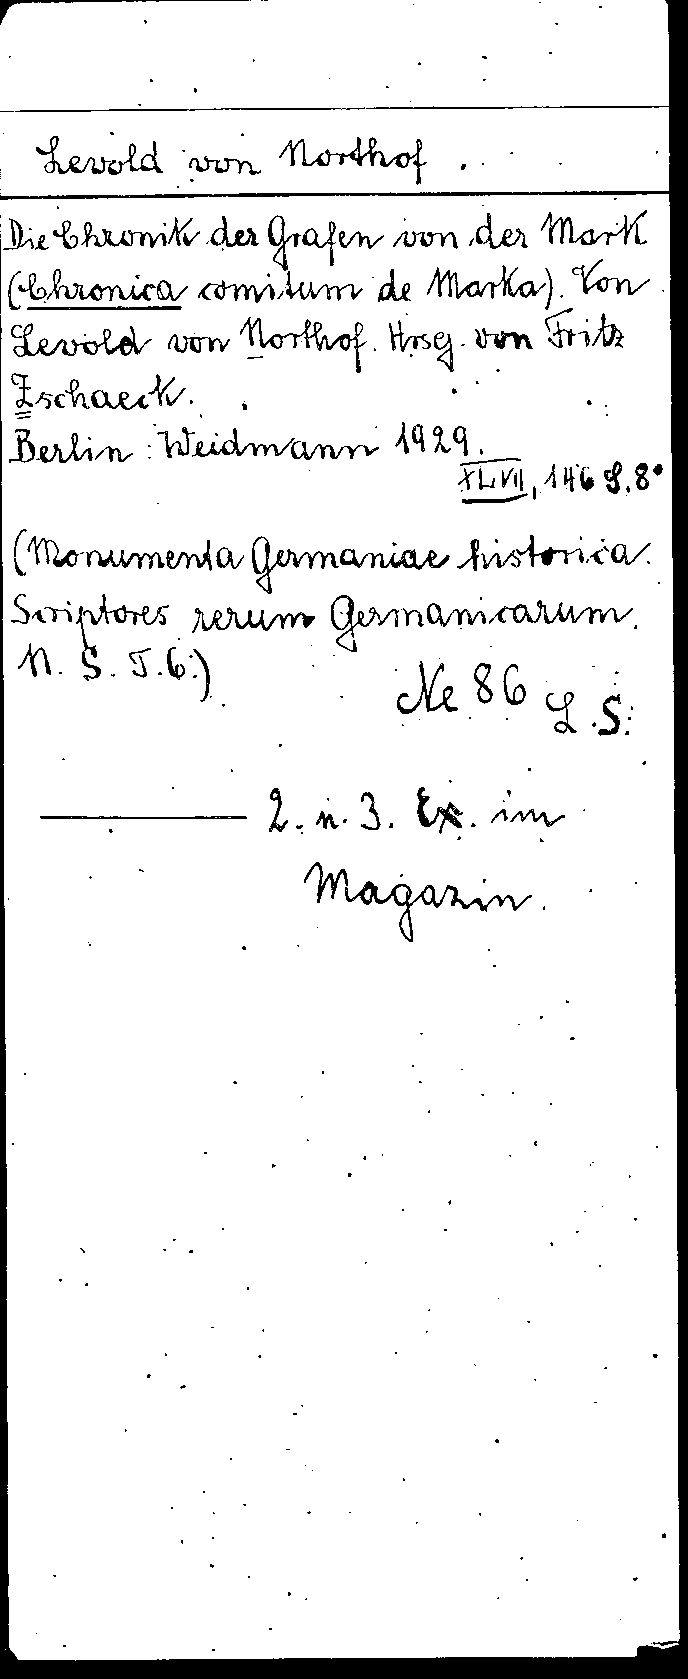 Levold von Northof.
Die Chronik der Grafen von der Mark
(Chronica comitum de Marka). Von
Levold von Northof. Hrsg. von Fritz
Zschaeck.
Berlin: Weidmann 1929.
XLVII, 146 S. 8°
(Monumenta Germaniae historica.
Scriptores rerum Germanicarum.
N. S. T. 6.)
Ne 86 L. S.
2. u. 3. Ex. im
Magazin.